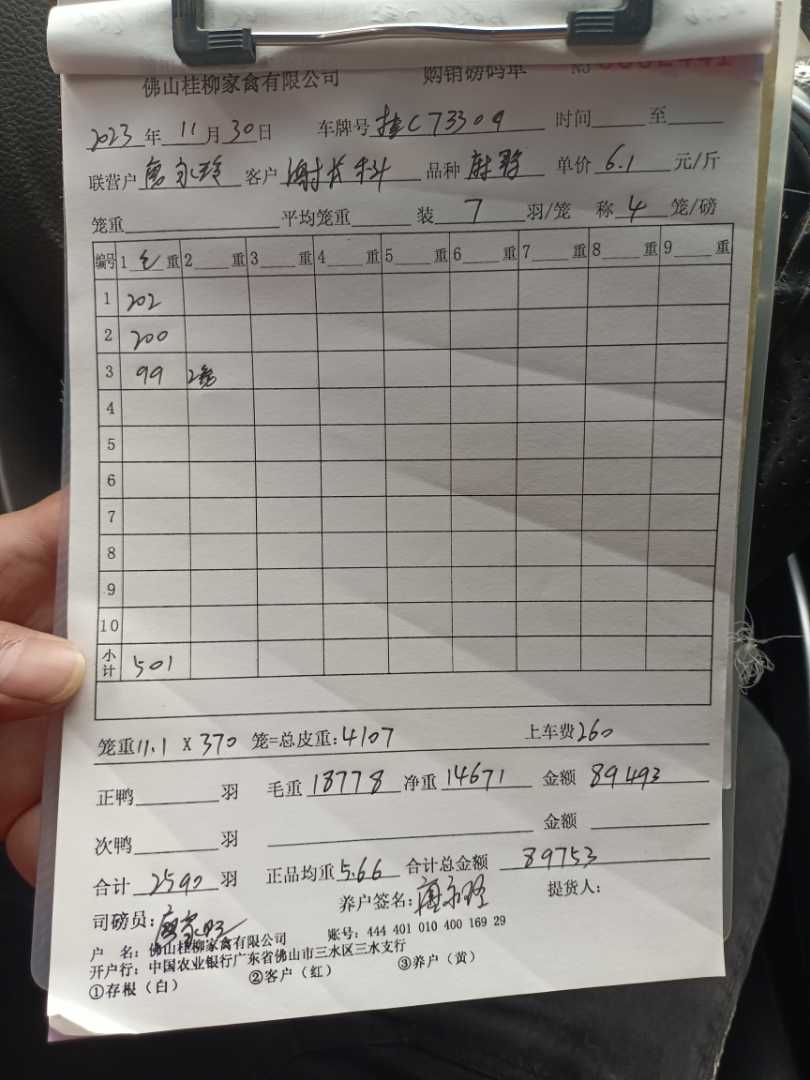 佛山桂柳家禽有限公司 购销磅码单 NJ 0002441
2023年11月30日 车牌号桂C73309 时间 至
联营户 客户 品种 单价6.1元/斤
笼重 平均笼重 装7羽/笼 称4笼/磅
编号 1 毛 重 2 重 3 重 4 重 5 重 6 重 7 重 8 重 9 重
1 202
2 200
3 99 2笼
4
5
6
7
8
9
10
小计 501
笼重11.1 X 370 笼=总皮重:4107 上车费260
正鸭 羽 毛重18778 净重14671 金额89493
次鸭 羽 金额
合计2590羽 正品均重5.66 合计总金额89753
养户签名: 提货人:
司磅员:
户 名: 佛山桂柳家禽有限公司 账号: 444 401 010 400 169 29
开户行: 中国农业银行广东省佛山市三水区三水支行
①存根（白） ②客户（红） ③养户（黄）